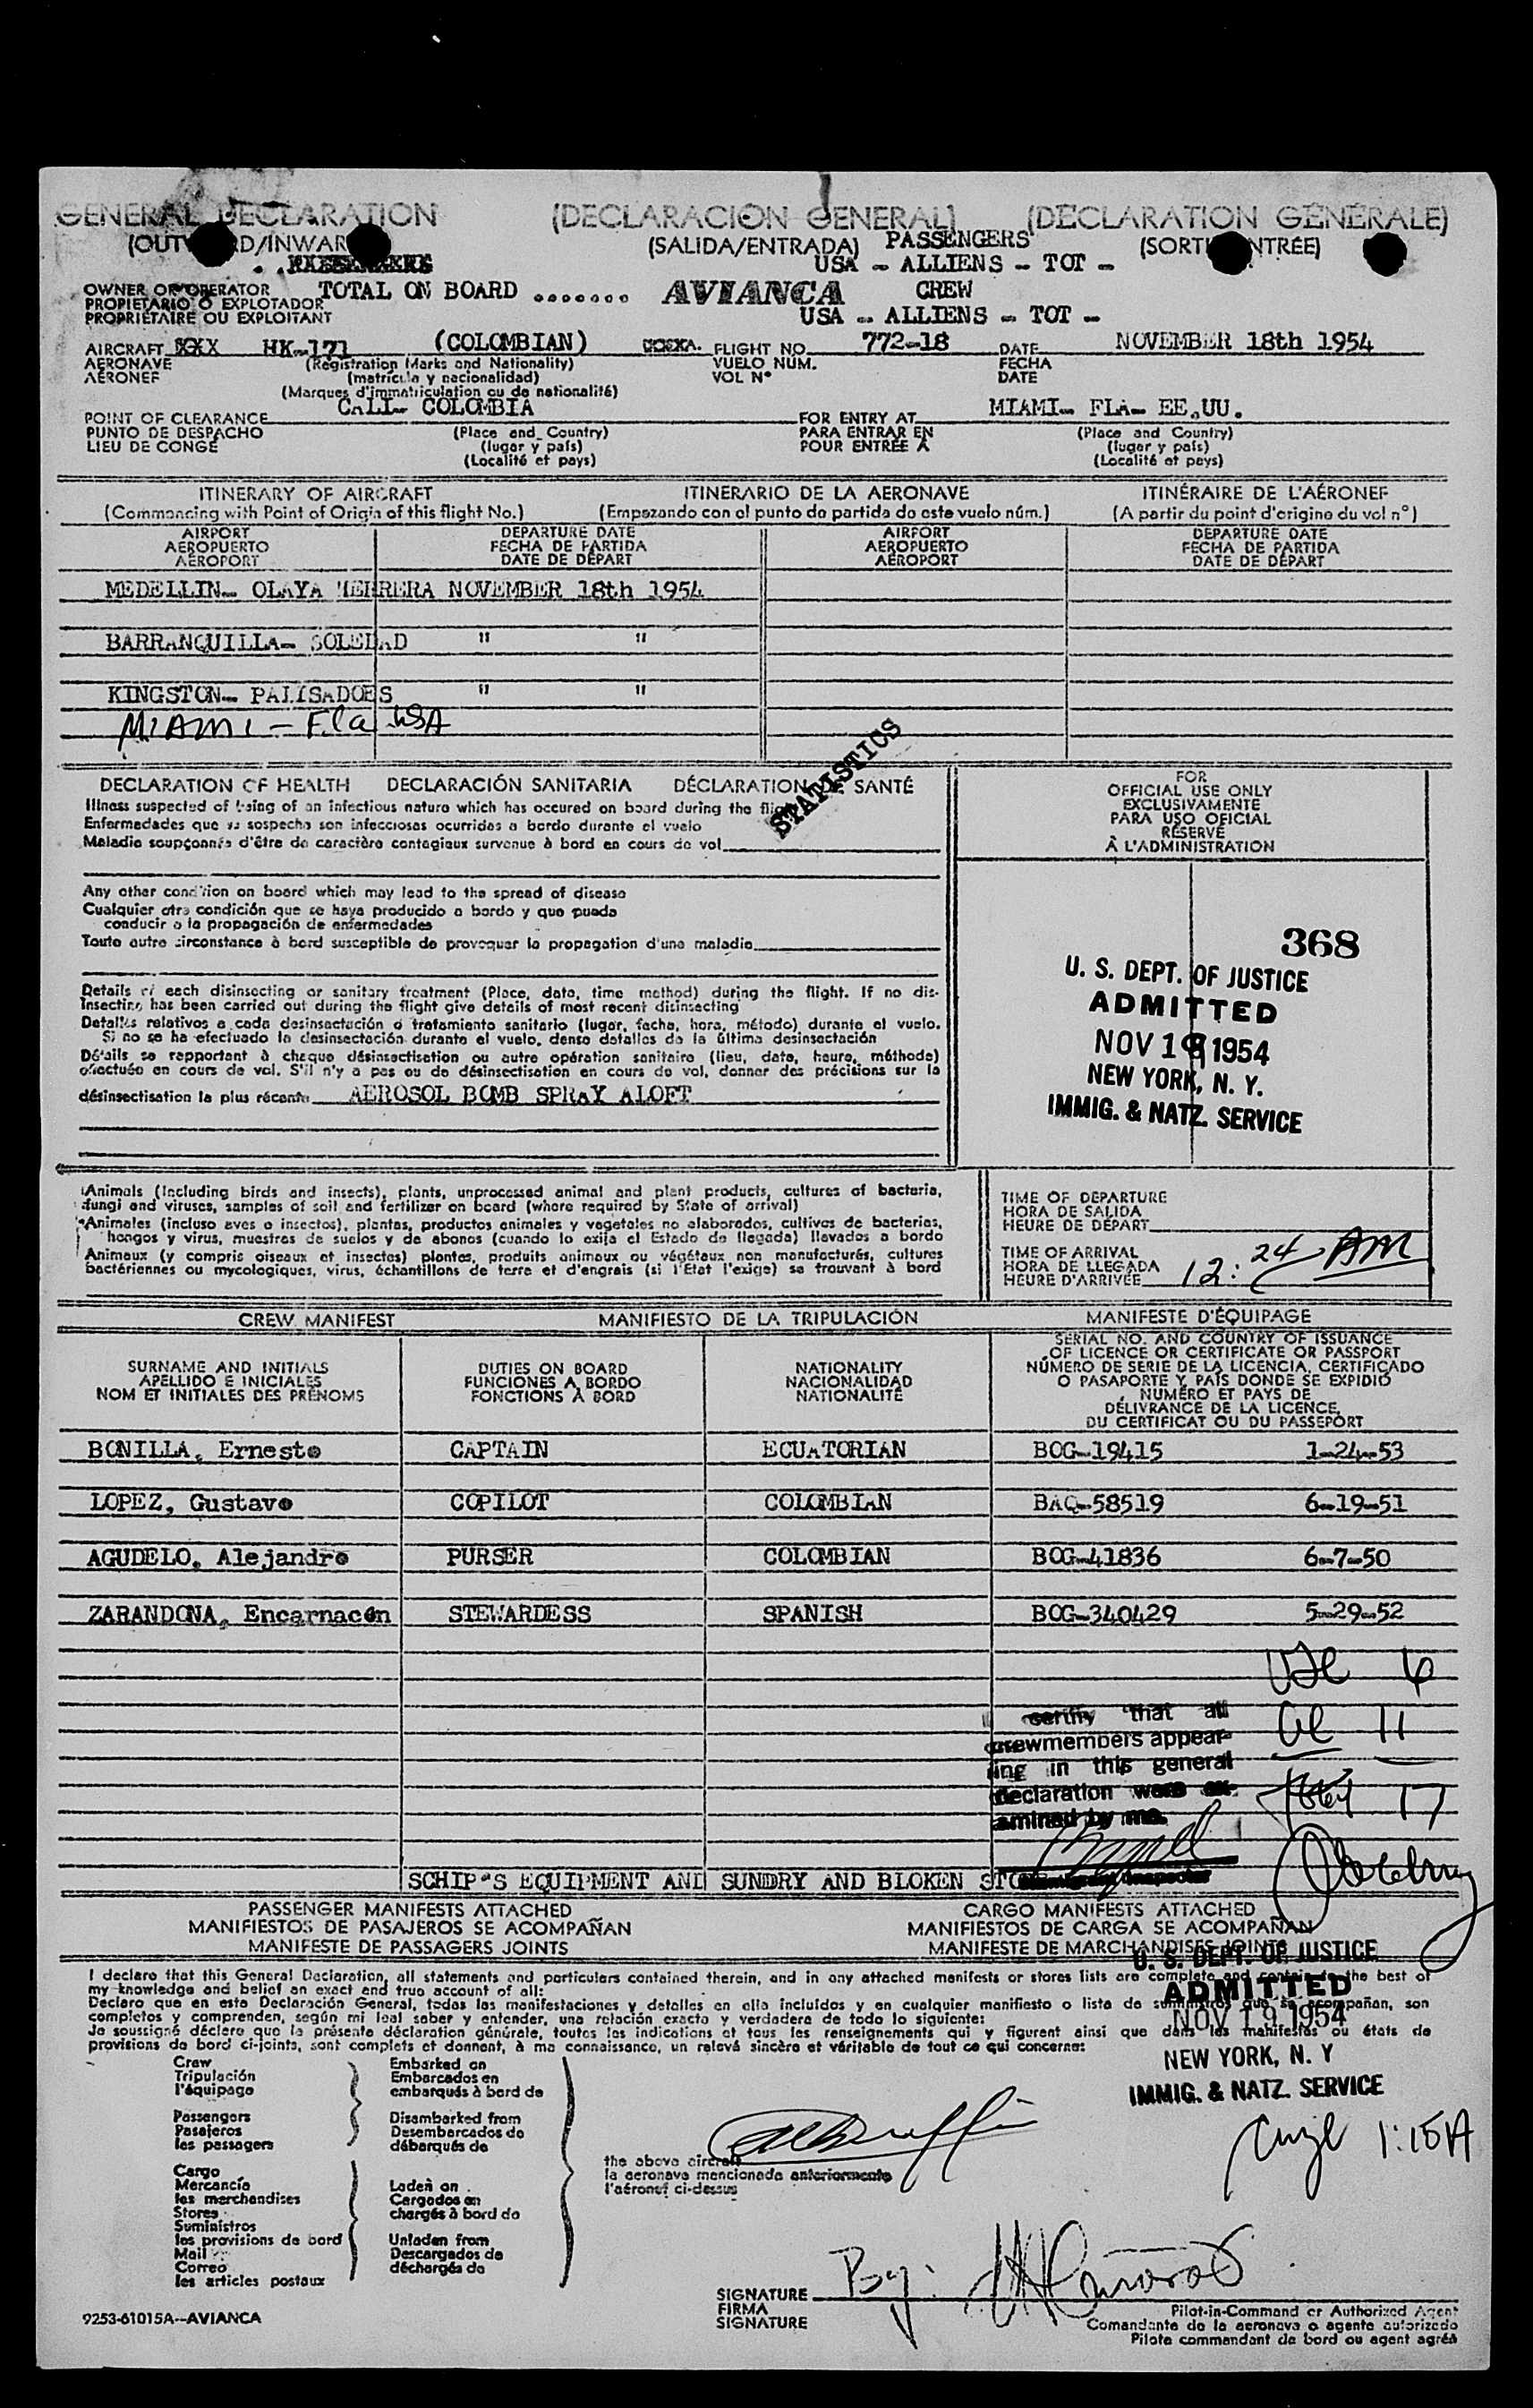 GENERAL DECLARATION (DECLARACIÓN GENERAL) (DECLARATION GÉNÉRALE)
(OUTWARD/INWARD (SALIDA/ENTRADA) PASSENGERS (SORTIE ENTRÉE)
USA - ALLIENS - TOT -
OWNER OR OPERATOR TOTAL ON BOARD ....... AVIANCA CREW
PROPIETARIO O EXPLOTADOR
PROPRIÉTAIRE OU EXPLOITANT USA - ALLIENS - TOT -
AIRCRAFT XXX HK-171 (COLOMBIAN) FLIGHT NO. 772-18 DATE NOVEMBER 18th 1954
AERONAVE (Registration Marks and Nationality) VUELO NÚM. FECHA
AÉRONEF (matrícula y nacionalidad) VOL N° DATE
(Marques d'immatriculation ou de nationalité)
POINT OF CLEARANCE CALI- COLOMBIA FOR ENTRY AT MIAMI- FLA- EE.UU.
PUNTO DE DESPACHO (Place and Country) PARA ENTRAR EN (Place and Country)
LIEU DE CONGÉ (lugar y país) POUR ENTRÉE À (lugar y país)
(Localité et pays) (Localité et pays)
ITINERARY OF AIRCRAFT ITINERARIO DE LA AERONAVE ITINÉRAIRE DE L'AÉRONEF
(Commencing with Point of Origin of this flight No.) (Empezando con el punto de partida de este vuelo núm.) (A partir du point d'origine du vol n°)
AIRPORT DEPARTURE DATE AIRPORT DEPARTURE DATE
AEROPUERTO FECHA DE PARTIDA AEROPUERTO FECHA DE PARTIDA
AÉROPORT DATE DE DÉPART AÉROPORT DATE DE DÉPART
MEDELLIN- OLAYA HERRERA NOVEMBER 18th 1954
BARRANQUILLA- SOLEDAD " "
KINGSTON- PALISADOES " "
MIAMI - Fla USA
STATISTICS
DECLARATION OF HEALTH DECLARACIÓN SANITARIA DÉCLARATION DE SANTÉ
Illness suspected of being of an infectious nature which has occured on board during the flight
Enfermedades que se sospecha son infecciosas ocurridas a bordo durante el vuelo
Maladie soupçonnés d'être de caractère contagieux survenue à bord en cours de vol
Any other condition on board which may lead to the spread of disease
Cualquier otra condición que se haya producido a bordo y que pueda
conducir a la propagación de enfermedades
Toute autre circonstance à bord susceptible de provoquer la propagation d'une maladie
Details of each disinsecting or sanitary treatment (Place, date, time method) during the flight. If no dis-
insecting has been carried out during the flight give details of most recent disinsecting
Detalles relativos a cada desinsectación o tratamiento sanitario (lugar, fecha, hora, método) durante el vuelo.
Si no se ha efectuado la desinsectación durante el vuelo, dense detalles de la última desinsectación
Détails se rapportant à chaque désinsectisation ou autre opération sanitaire (lieu, date, heure, méthode)
effectuée en cours de vol. S'il n'y a pas eu de désinsectisation en cours de vol, donner des précisions sur la
désinsectisation la plus récente AEROSOL BOMB SPRAY ALOFT
FOR
OFFICIAL USE ONLY
EXCLUSIVAMENTE
PARA USO OFICIAL
RÉSERVÉ
À L'ADMINISTRATION
368
U. S. DEPT. OF JUSTICE
ADMITTED
NOV 19 1954
NEW YORK, N. Y.
IMMIG. & NATZ. SERVICE
Animals (Including birds and insects), plants, unprocessed animal and plant products, cultures of bacteria,
fungi and viruses, samples of soil and fertilizer on board (where required by State of arrival)
Animales (incluso aves o insectos), plantas, productos animales y vegetales no elaborados, cultivos de bacterias,
hongos y virus, muestras de suelos y de abonos (cuando lo exija el Estado de llegada) llevados a bordo
Animaux (y compris oiseaux et insectes) plantes, produits animaux ou végétaux non manufacturés, cultures
bactériennes ou mycologiques, virus, échantillons de terre et d'engrais (si l'Etat l'exige) se trouvant à bord
TIME OF DEPARTURE
HORA DE SALIDA
HEURE DE DÉPART
TIME OF ARRIVAL
HORA DE LLEGADA
HEURE D'ARRIVÉE 12:24 AM
CREW MANIFEST MANIFIESTO DE LA TRIPULACIÓN MANIFESTE D'ÉQUIPAGE
SURNAME AND INITIALS DUTIES ON BOARD NATIONALITY
APELLIDO E INICIALES FUNCIONES A BORDO NACIONALIDAD
NOM ET INITIALES DES PRÉNOMS FONCTIONS À BORD NATIONALITÉ
SERIAL NO. AND COUNTRY OF ISSUANCE
OF LICENCE OR CERTIFICATE OR PASSPORT
NÚMERO DE SERIE DE LA LICENCIA, CERTIFICADO
O PASAPORTE Y PAÍS DONDE SE EXPIDIÓ
NUMÉRO ET PAYS DE
DÉLIVRANCE DE LA LICENCE,
DU CERTIFICAT OU DU PASSEPORT
BONILLA, Ernesto CAPTAIN ECUATORIAN BOG-19415 1-24-53
LOPEZ, Gustavo COPILOT COLOMBIAN BAQ-58519 6-19-51
AGUDELO, Alejandro PURSER COLOMBIAN BOG-41836 6-7-50
ZARANDONA, Encarnacón STEWARDESS SPANISH BOG-340429 5-29-52
6
11
17
certify that all
crewmembers appear-
ing in this general
declaration were ex-
amined by me.
Immigrant Inspector
SCHIP"S EQUIPMENT AND SUNDRY AND BLOKEN
PASSENGER MANIFESTS ATTACHED CARGO MANIFESTS ATTACHED
MANIFIESTOS DE PASAJEROS SE ACOMPAÑAN MANIFIESTOS DE CARGA SE ACOMPAÑAN
MANIFESTE DE PASSAGERS JOINTS MANIFESTE DE MARCHANDISES JOINTS
I declare that this General Declaration, all statements and particulars contained therein, and in any attached manifests or stores lists are complete and contain to the best of
my knowledge and belief an exact and true account of all:
Declaro que en esta Declaración General, todas las manifestaciones y detalles en ella incluídos y en cualquier manifiesto o lista de suministros que se acompañan, son
completos y comprenden, según mi leal saber y entender, una relación exacta y verdadera de todo lo siguiente:
Je soussigné déclare que la présente déclaration générale, toutes les indications et tous les renseignements qui y figurent ainsi que dans les manifestes ou états de
provisions de bord ci-joints, sont complets et donnent, à ma connaissance, un relevé sincère et véritable de tout ce qui concerne:
U. S. DEPT. OF JUSTICE
ADMITTED
NOV 19 1954
NEW YORK, N. Y
IMMIG. & NATZ. SERVICE
1:15A
Crew Embarked on
Tripulación Embarcados en
l'équipage embarqués à bord de
Passengers Disembarked from
Pasajeros Desembarcados de
les passagers débarqués de
the above aircraft
la aeronave mencionada anteriormente
l'aéronef ci-dessus
Cargo
Mercancía Laden on
les merchandises Cargados en
Stores chargés à bord de
Suministros
les provisions de bord Unladen from
Mail Descargados de
Correo déchargés de
les articles postaux
SIGNATURE By:
FIRMA
SIGNATURE
Pilot-in-Command or Authorized Agent
Comandante de la aeronave o agente autorizado
Pilote commandant de bord ou agent agréé
9253-61015A--AVIANCA